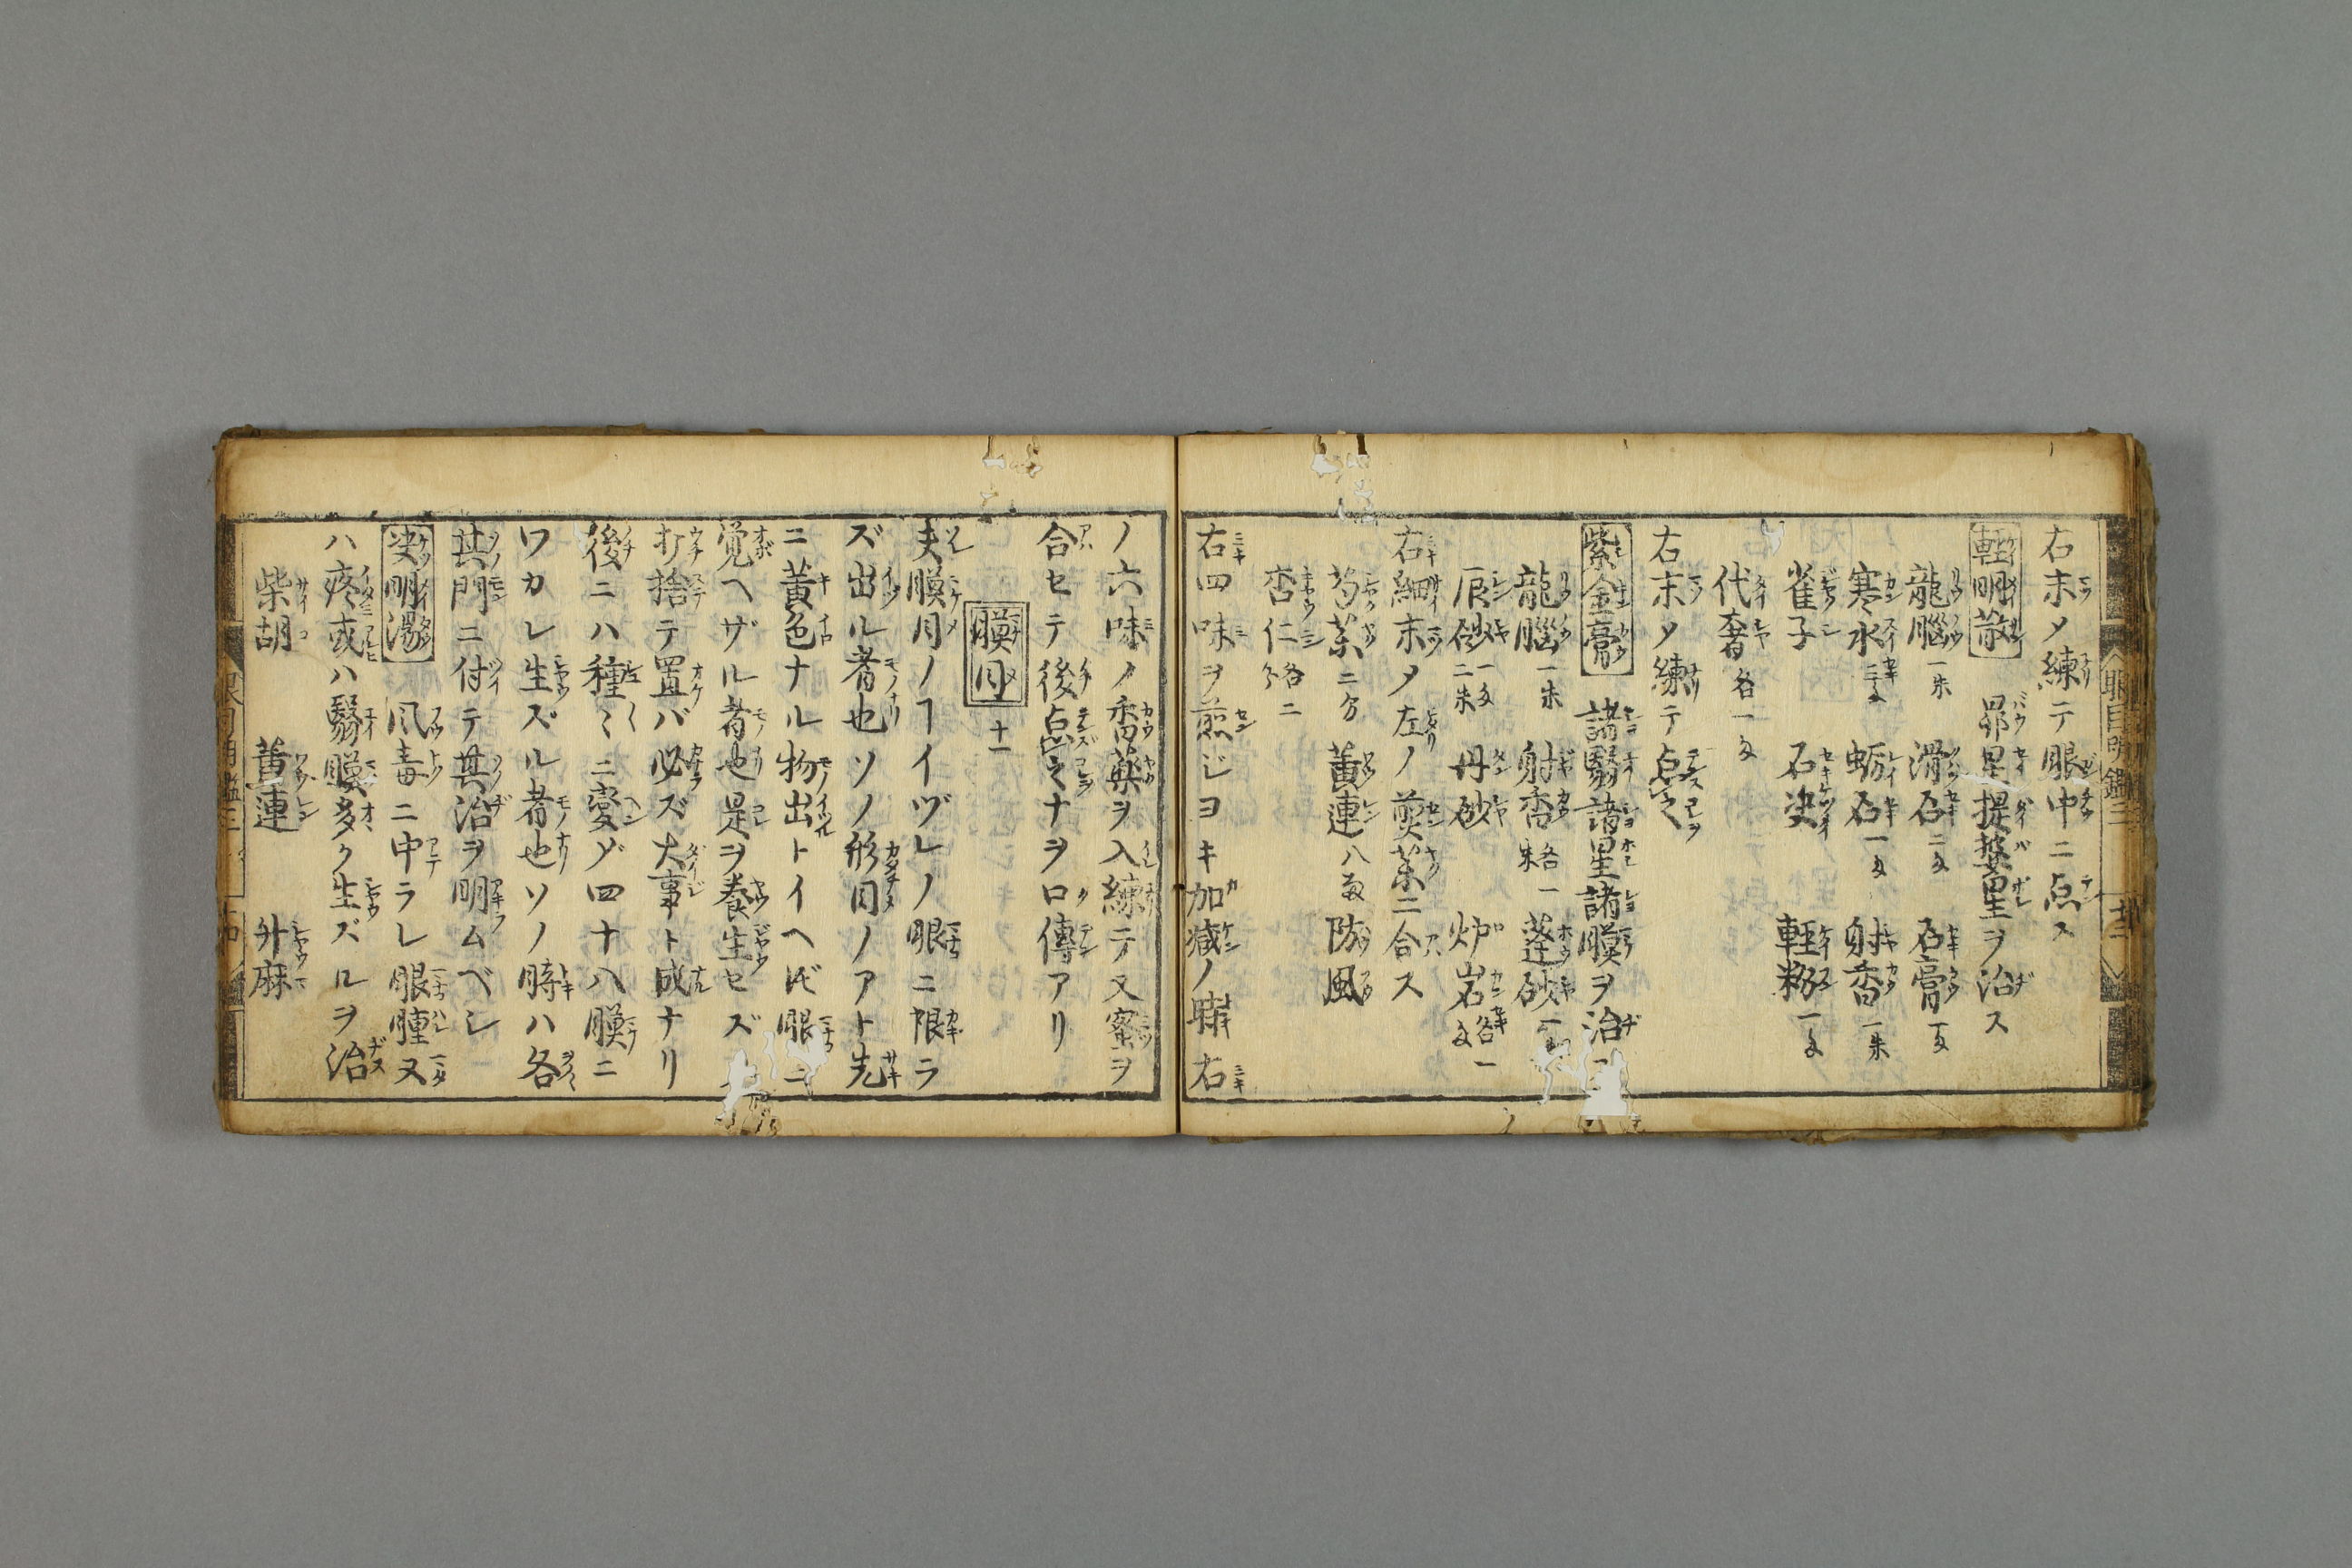 右末メ練テ眼中ニ点ス
輕明散 昴星提婆星ヲ治ス
龍腦一朱 滑石二匁 石膏一匁
寒水三匁 蛎石一匁 射香一朱
雀子 石决 輕粉一匁
代赭各一匁
右末メ練テ点之
紫金膏 諸翳諸星諸膜ヲ治
龍腦一朱 射香各一朱 蓬砂
辰砂一匁二朱 丹砂 炉岩各一匁
右細末メ左ノ煎薬ニ合ス
芍薬二分 黄連八 防風
杏仁各二分
右四味ヲ煎ジヨキ加减ノ時右
ノ六味ノ香薬ヲ入練テ又蜜ヲ
合セテ後点之ナヲ口傳アリ
膜目 十一
夫膜目ノヿイヅレノ眼ニ限ラ
ズ出ル者也ソノ形目ノアト先
ニ黄色ナル物出トイヘ𪜈眼ニ
覚ヘザル者也是ヲ養生セズ
打捨テ置バ必ズ大事ト成ナリ
後ニハ種〻ニ変ゾ四十八膜ニ
ワカレ生ズル者也ソノ時ハ各
其門ニ付テ其治ヲ明ムベシ
决明湯 风毒ニ中ラレ眼腫又
ハ疼或ハ翳膜多ク生ズルヲ治
柴胡 黄連 升麻
眼目明鑑三